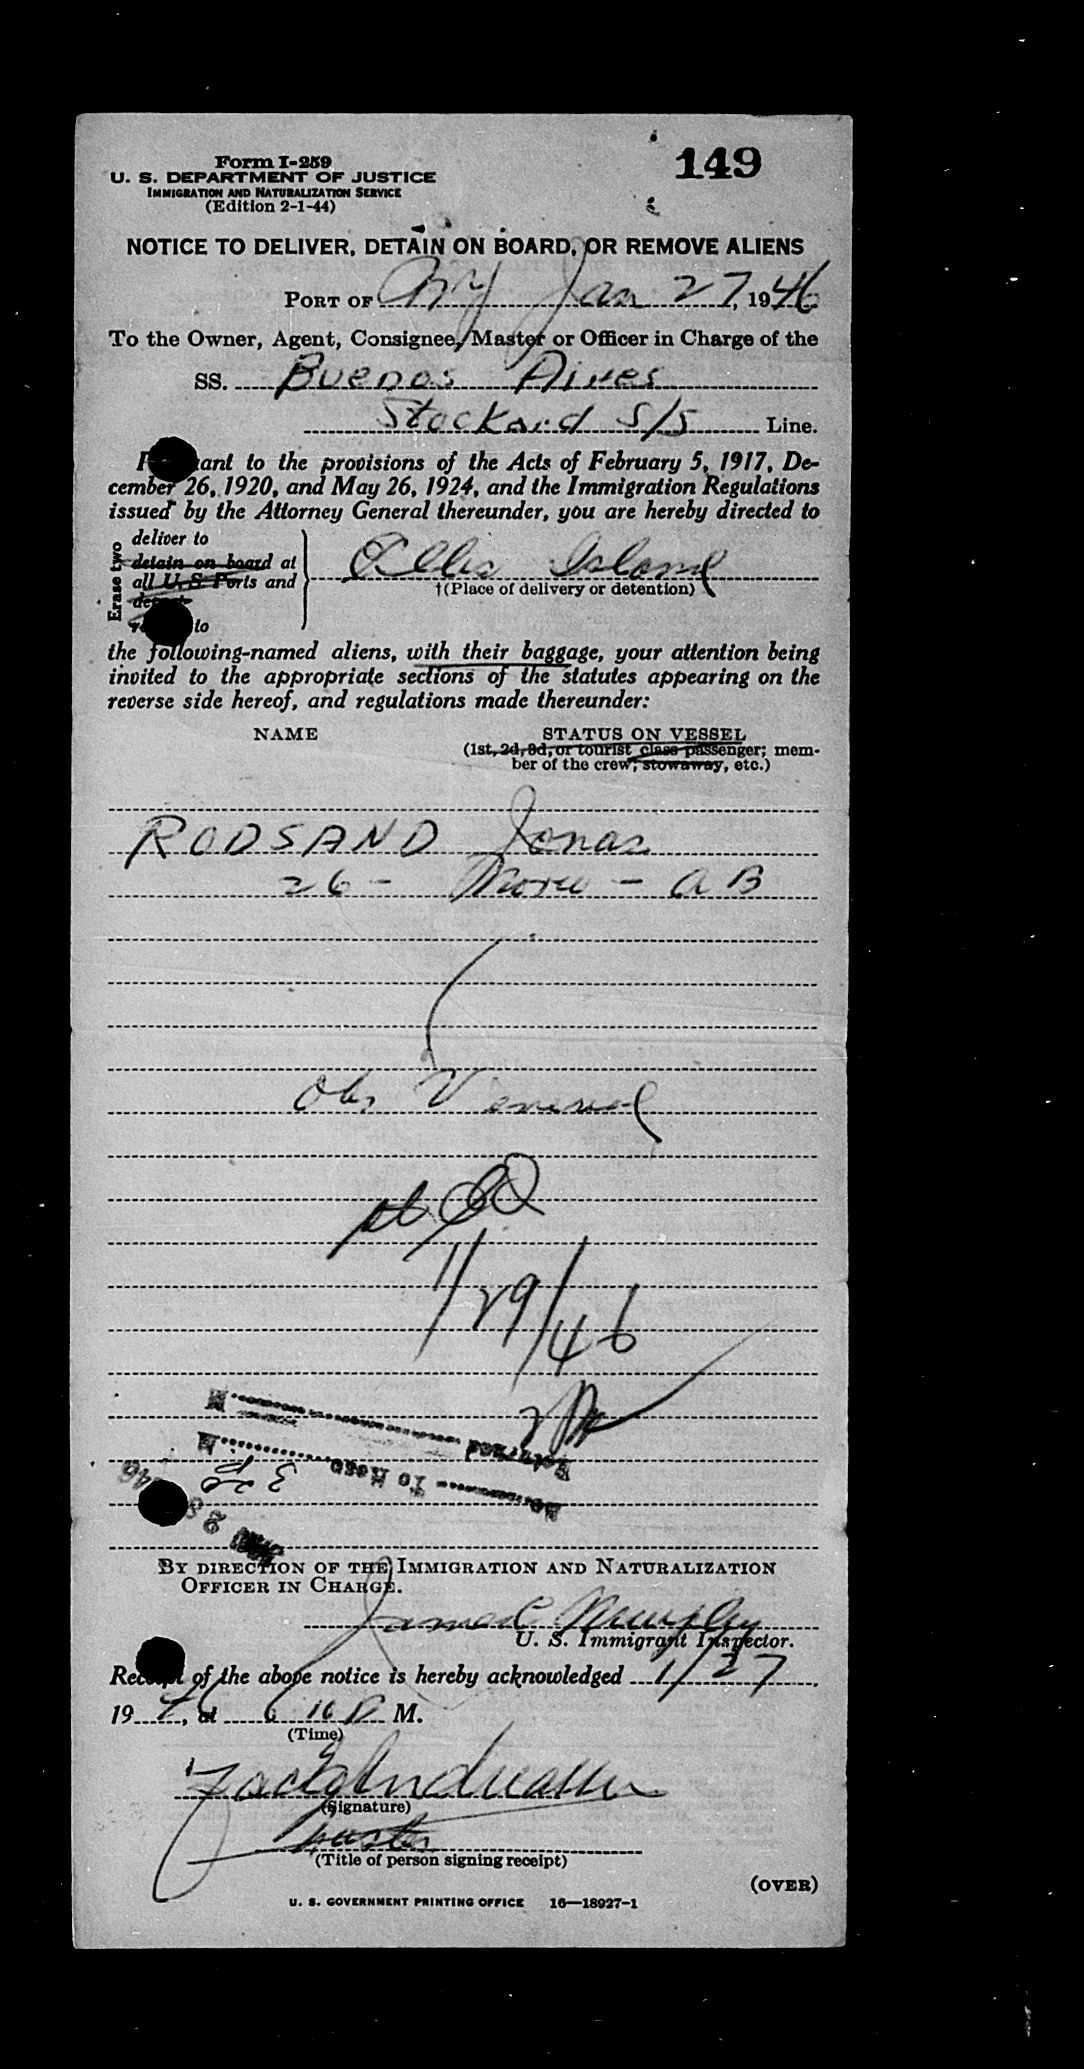 149
Form I-259
U. S. DEPARTMENT OF JUSTICE
IMMIGRATION AND NATURALIZATION SERVICE
(Edition 2-1-44)
NOTICE TO DELIVER, DETAIN ON BOARD, OR REMOVE ALIENS
PORT OF NY Jan 27, 1946
To the Owner, Agent, Consignee, Master or Officer in Charge of the
SS. Buenos Aires
Stockard S/S Line.
ant to the provisions of the Acts of February 5, 1917, De-
cember 26, 1920, and May 26, 1924, and the Immigration Regulations
issued by the Attorney General thereunder, you are hereby directed to
Erase two
deliver to
detain on board at
all U. S. Ports and
to
Ellis Island
†(Place of delivery or detention)
the following-named aliens, with their baggage, your attention being
invited to the appropriate sections of the statutes appearing on the
reverse side hereof, and regulations made thereunder:
NAME STATUS ON VESSEL
(1st, 2d, 3d, or tourist class passenger; mem-
ber of the crew, stowaway, etc.)
RODSAND Jonas
26 - Norw - AB
Obs Venereal
1/29/46
M
Returned
M To Hosp
3 20 P
28 46
BY DIRECTION OF THE IMMIGRATION AND NATURALIZATION
OFFICER IN CHARGE.
James Murphy
U. S. Immigrant Inspector.
Receipt of the above notice is hereby acknowledged 1/27,
1946, at 6 16 P M.
(Time)
(Signature)
Master
(Title of person signing receipt)
(OVER)
U. S. GOVERNMENT PRINTING OFFICE 16—18927-1